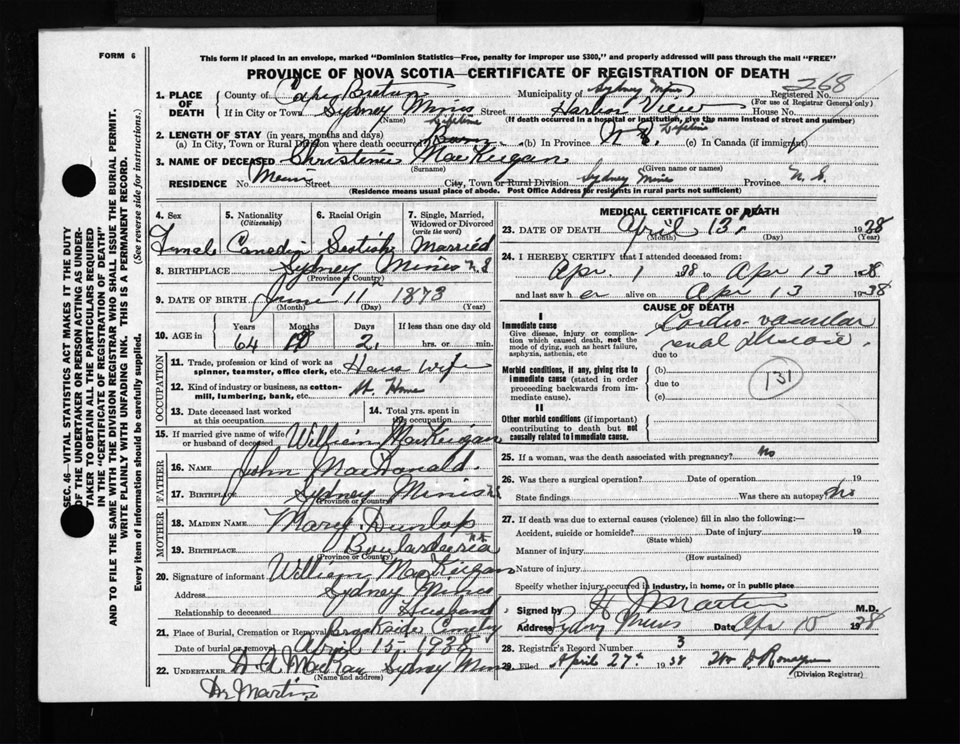 FORM 6
This form if placed in an envelope, marked "Dominion Statistics—Free, penalty for improper use $300," and properly addressed will pass through the mail "FREE"
PROVINCE OF NOVA SCOTIA—CERTIFICATE OF REGISTRATION OF DEATH
268
1. PLACE OF DEATH
County of Cape Breton Municipality of Sydney Mines Registered No.
(For use of Registrar General only)
If in City or Town Sydney Mines Street Harbor View House No.
(Name) (If death occurred in a hospital or institution, give the name instead of street and number)
2. LENGTH OF STAY (in years, months and days)
Lifetime Lifetime
(a) In City, Town or Rural Division where death occurred Born (b) In Province N S. (c) In Canada (if immigrant)
3. NAME OF DECEASED Christenie MacKeigan
(Surname) (Given name or names)
RESIDENCE No. Main Street City, Town or Rural Division Sydney Mines Province N. S.
(Residence means usual place of abode. Post Office Address for residents in rural parts not sufficient)
4. Sex
5. Nationality (Citizenship)
6. Racial Origin
7. Single, Married, Widowed or Divorced (write the word)
Femal Canadin Scotish Married
8. BIRTHPLACE Sydney Mines N S
(Province or Country)
9. DATE OF BIRTH June 11th 1873
(Month) (Day) (Year)
10. AGE in
Years Months Days If less than one day old
64 10 2 hrs. or min.
OCCUPATION
11. Trade, profession or kind of work as spinner, teamster, office clerk, etc. House Wife
12. Kind of industry or business, as cotton-mill, lumbering, bank, etc. At Home
13. Date deceased last worked at this occupation
14. Total yrs. spent in this occupation
15. If married give name of wife or husband of deceased William MacKeigan
FATHER
16. NAME John MacDonald.
17. BIRTHPLACE Sydney Mines N S
(Province or Country)
MOTHER
18. MAIDEN NAME Mary Dunlap
19. BIRTHPLACE Boulardaeria N S
(Province or Country)
20. Signature of informant William MacKeigan
Address Sydney Mines
Relationship to deceased Husband
21. Place of Burial, Cremation or Removal
Date of burial or removal April 15 1938
22. UNDERTAKER D A MacKay Sydney Mines
(Name and address)
Dr Martin
MEDICAL CERTIFICATE OF DEATH
23. DATE OF DEATH April 13th 1938
(Month) (Day) (Year)
24. I HEREBY CERTIFY that I attended deceased from:
Apr. 1 1938 to Apr 13 1938
and last saw her alive on Apr 13 1938
CAUSE OF DEATH
I
Immediate cause
Give disease, injury or complication which caused death, not the mode of dying, such as heart failure, asphyxia, asthenia, etc
Cardio-vascular
renal disease.
due to
Morbid conditions, if any, giving rise to immediate cause (stated in order proceeding backwards from immediate cause).
(b)
due to
(c)
131
II
Other morbid conditions (if important) contributing to death but not causally related to immediate cause.
25. If a woman, was the death associated with pregnancy? No
26. Was there a surgical operation? Date of operation 19
State findings Was there an autopsy No
27. If death was due to external causes (violence) fill in also the following:—
Accident, suicide or homicide? Date of injury 19
(State which)
Manner of injury
(How sustained)
Nature of injury
Specify whether injury occurred in industry, in home, or in public place
Signed by H Martin M.D.
Address Sydney Mines Date Apr 15 1938
28. Registrar's Record Number 3
29. Filed April 27th 1938
(Division Registrar)
SEC. 46—VITAL STATISTICS ACT MAKES IT THE DUTY
OF THE UNDERTAKER OR PERSON ACTING AS UNDERTAKER TO OBTAIN ALL THE PARTICULARS REQUIRED
IN THE "CERTIFICATE OF REGISTRATION OF DEATH"
AND TO FILE THE SAME WITH THE DIVISION REGISTRAR WHO SHALL ISSUE THE BURIAL PERMIT.
WRITE PLAINLY WITH UNFADING INK. THIS IS A PERMANENT RECORD.
Every item of information should be carefully supplied. (See reverse side for instructions.)